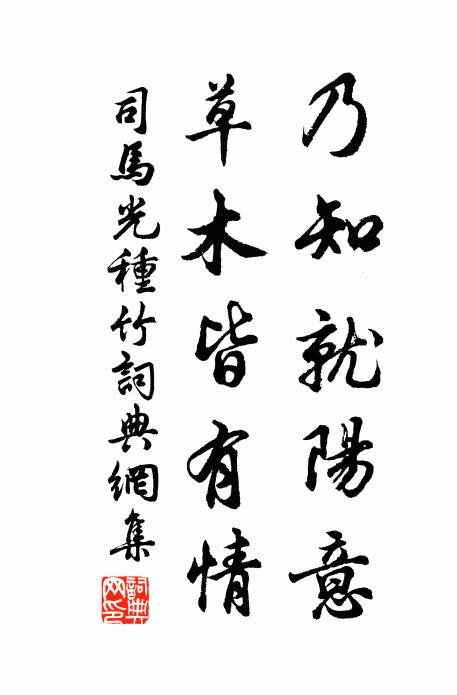 乃知就陽意
草木皆有情
司馬光種竹詞典網集
詞典網印